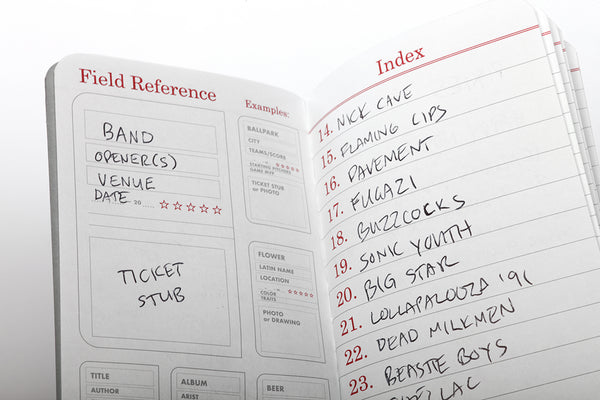 Field Reference
BAND
OPENER(S)
VENUE
DATE 20
TICKET
STUB
Examples:
BALLPARK
CITY
TEAMS/SCORE
STARTING PITCHERS
GAME MVP
TICKET STUB
or PHOTO
FLOWER
LATIN NAME
LOCATION
COLOR
TRAITS
PHOTO
or DRAWING
TITLE
AUTHOR
ALBUM
BEER
Index
14. NICK CAVE
15. FLAMING LIPS
16. PAVEMENT
17. FUGAZI
18. BUZZCOCKS
19. SONIC YOUTH
20. BIG STAR
21. LOLLAPALOOZA '91
22. DEAD MILKMEN
23. BEASTIE BOYS